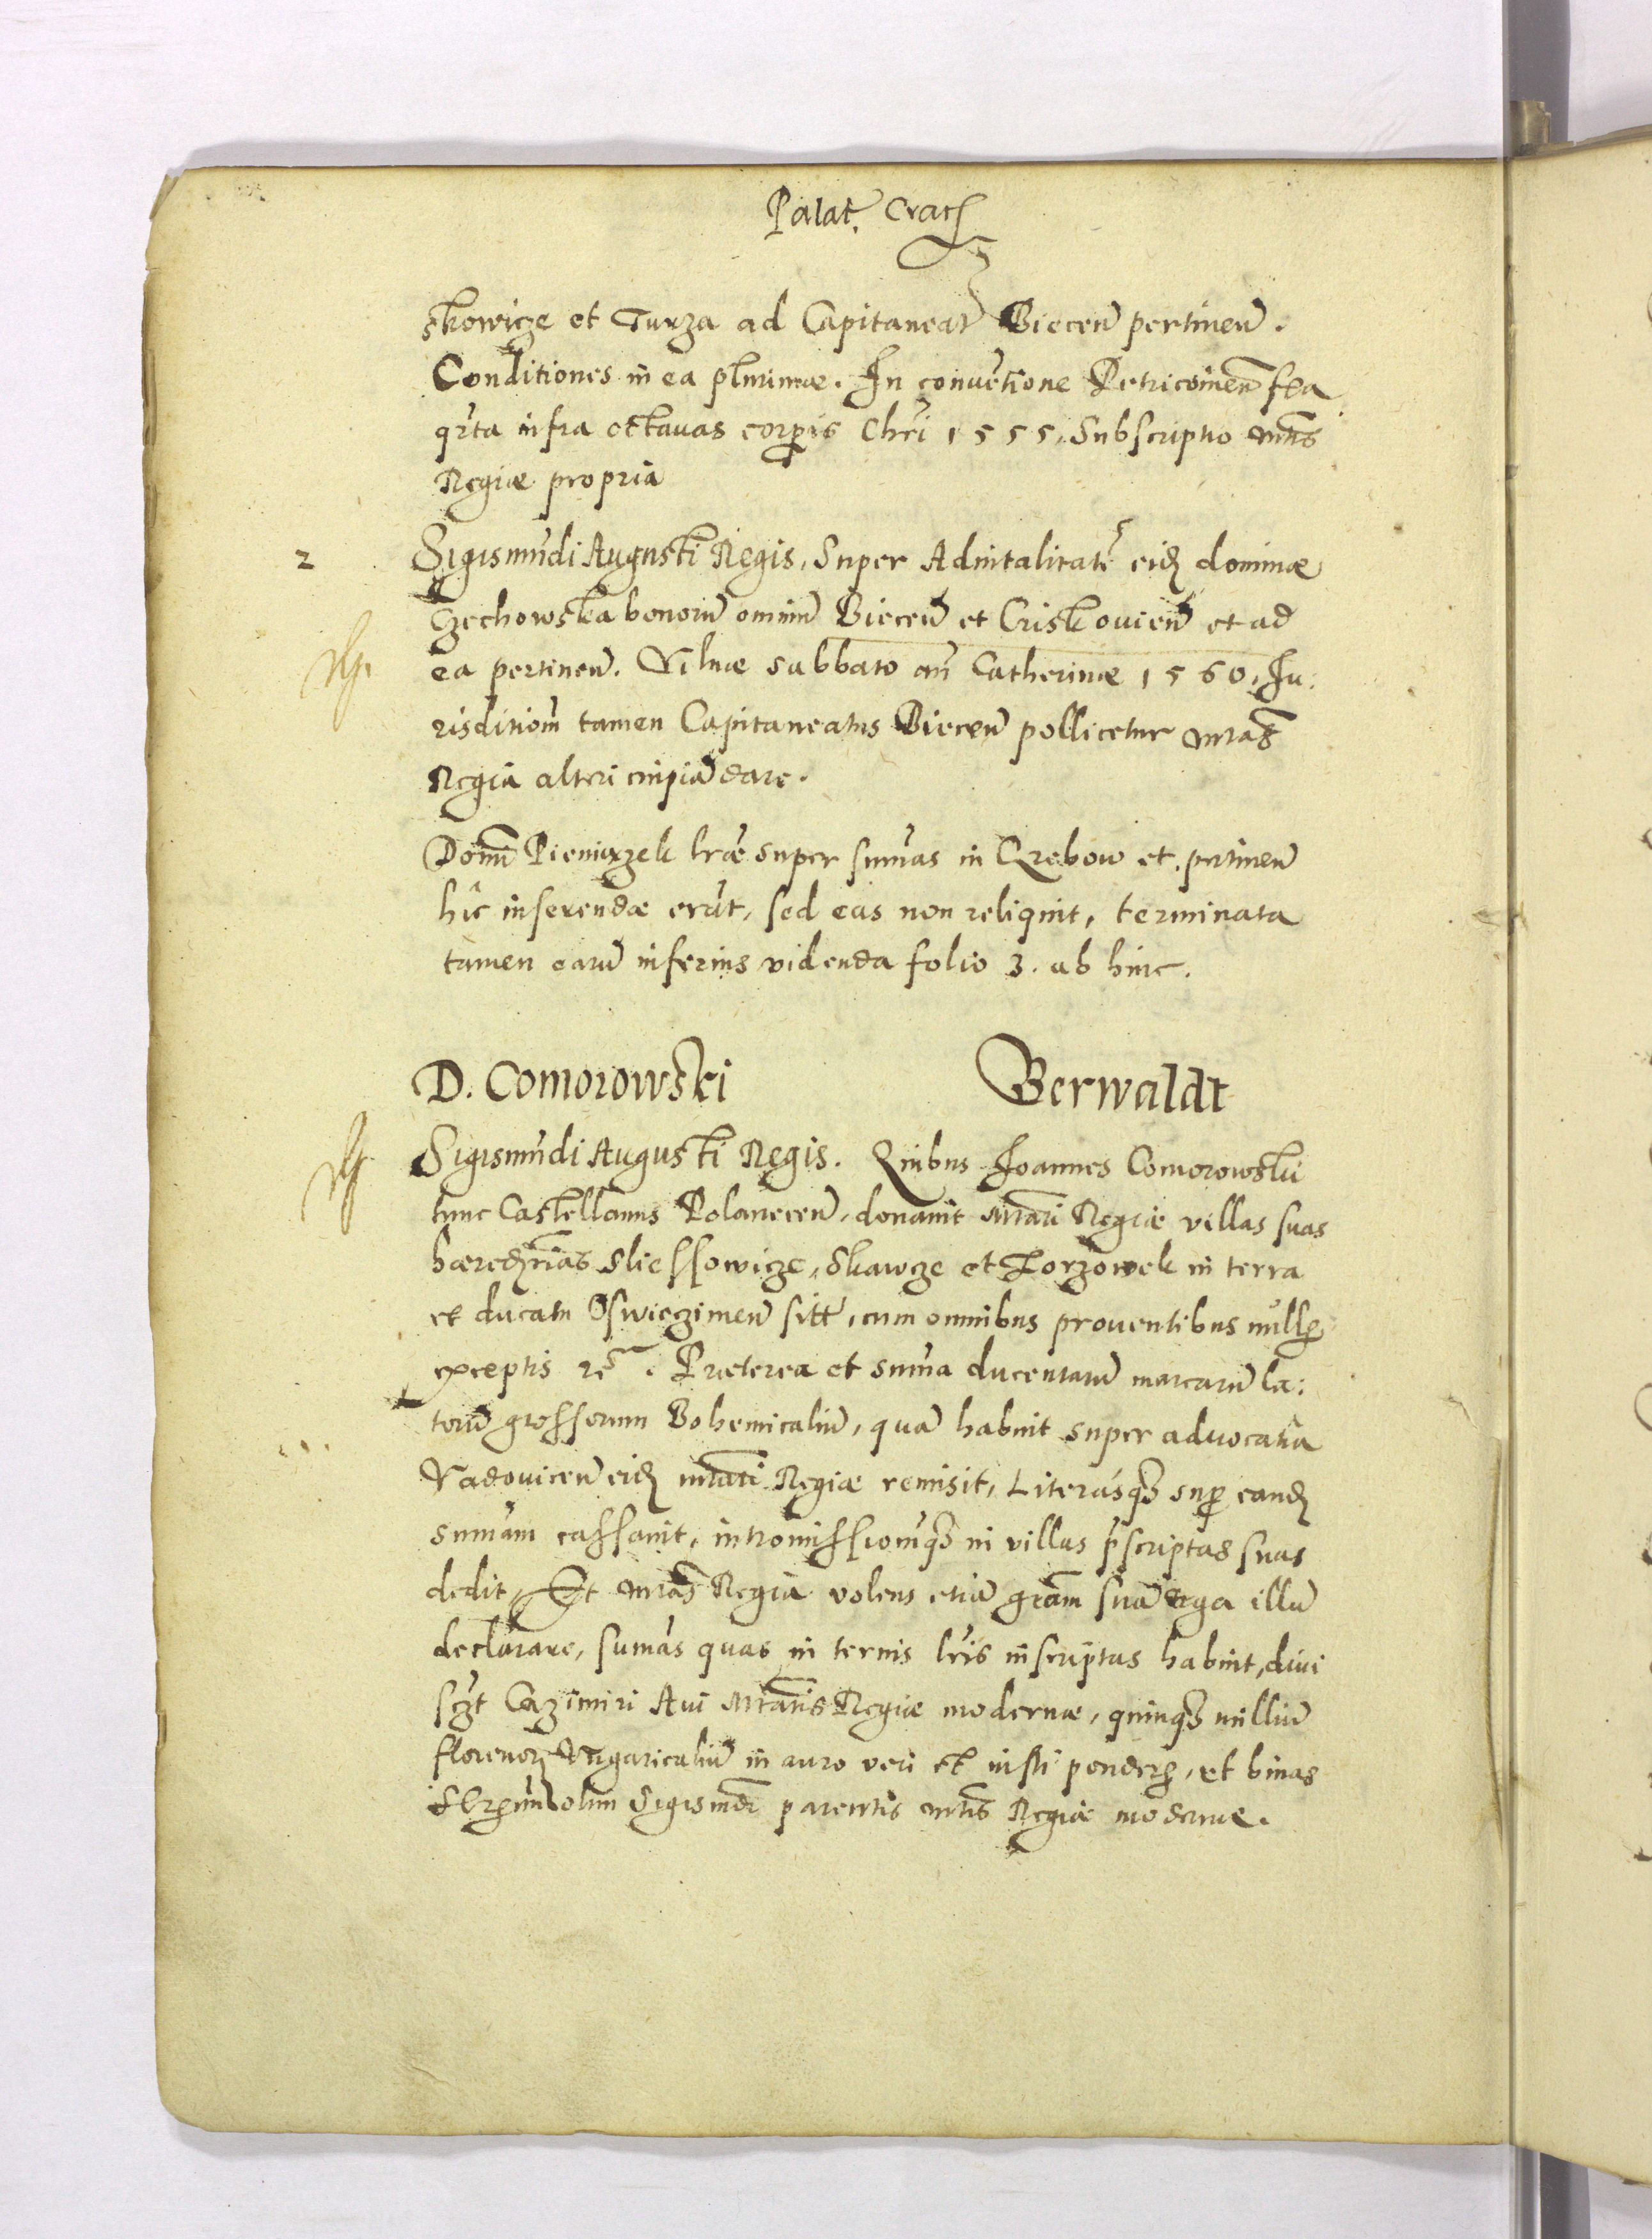 Palat. Crac
skowicze et Turza ad Capitaneat Biecen pertinen.
Conditiones in ea plurimae. In conuentione Petricouien fea
qrta infra octauas corpis Chri 1555. Subscriptio Mtis
Regiae propria
2 Sigismudi Augusti Regis, Super Aduitalitate eid dominae
Czechowska bonoru omniu Biecen et Criskouien et ad
ea pertinen. Vilnae sabbato an Catherinae 1560. Iu:
risditiom tamen Capitaneatus Biecen pollicetur Mtas
Regia alteri cuipia dare.
Domi Pieniazek lrae super sumas in Grebow et pertinen
hic inserendae erat, sed eas non reliquit, terminata
tamen earu inferius videnda folio 3. ab hinc.
D. Comorowski Berwaldt
Sigismudi Augusti Regis. Quibus Ioannes Comorowski
tunc Castellanus Polanecen, donauit Mtati Regiae villas suas
haeredrias Sliessowicze, Skawcze et Korzowek in terra
et ducatu Oswieczimen sitt, cum omnibus prouentibus null
exceptis re. Praeterea et suma ducentaru marcaru la:
toru grossorum Bohemicaliu, qua habuit super aduocatia
Vadouicen eid Mtati Regiae remisit, Literasq sup eand
sumam cassauit, intromissiomq in villas pscriptas suas
dedit, Et Mtas Regia volens etia gram sua erga illu
declarare, sumas quas in ternis lris inscriptas habuit, diui
sczt Cazimiri Aui Mtatis Regiae modernae, quinq milliu
florenor Vngaricaliu in auro veri et iusti ponder, et binas
olim Sigismdi parentis Mtis Regiae modernae.